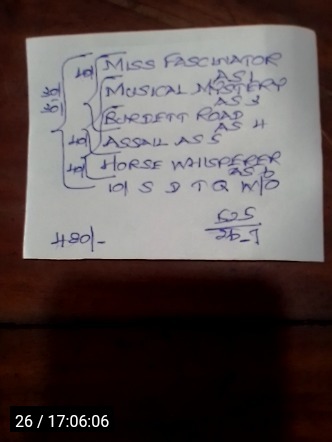 40/ MISS FASCINATOR
AS 1
MUSICAL MYSTERY
AS 3
BURDETT ROAD
AS 4
40/ ASSAIL AS 5
40/ HORSE WHISPERER
AS 6
10/ S D T Q W/O
480/-
26 / 17:06:06